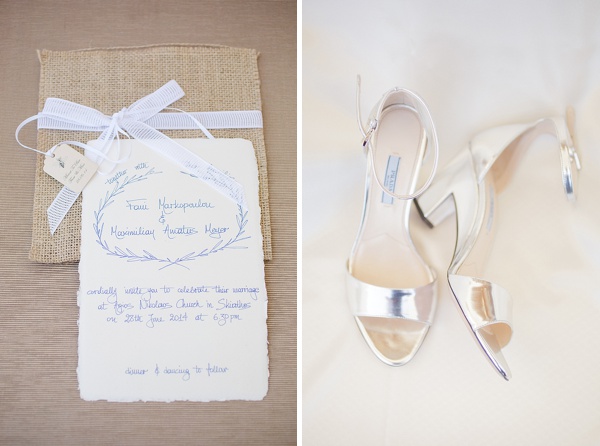 together with
Fani Markopoulou
&
Maximilian Amatus Meyer
cordially invite you to celebrate their marriage
at Agios Nikolaos Church in Skiathos
on 28th June 2014 at 6:30 pm
dinner & dancing to follow